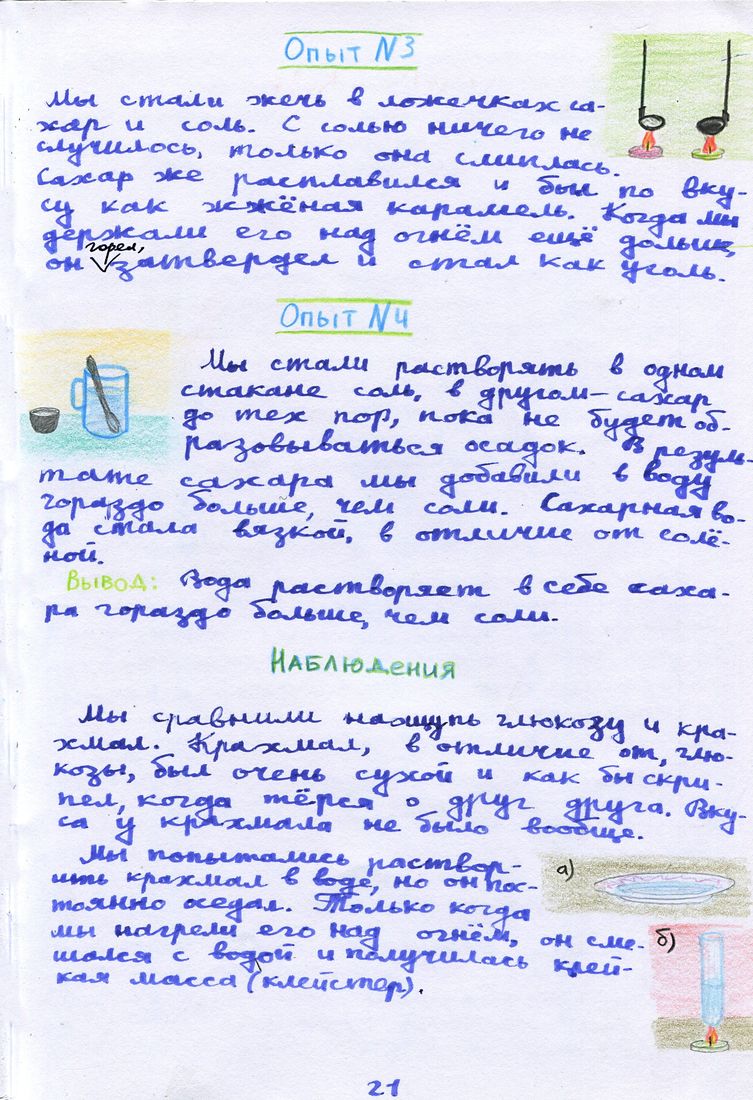 Опыт №3
Мы стали жечь в ложечках са-
хар и соль. С солью ничего не
случилось, только она слиплась.
Сахар же расплавился и был по вку-
су как жжёная карамель. Когда мы
держали его над огнём ещё дольше,
горел,
он затвердел и стал как уголь.
Опыт №4
Мы стали растворять в одном
стакане соль, в другом - сахар
до тех пор, пока не будет об-
разовываться осадок. В резуль-
тате сахара мы добавили в воду
гораздо больше, чем соли. Сахарная во-
да стала вязкой, в отличие от солё-
ной.
Вывод: Вода растворяет в себе саха-
ра гораздо больше, чем соли.
Наблюдения
Мы сравнили наощупь глюкозу и кра-
хмал. Крахмал, в отличие от, глю-
козы, был очень сухой и как бы скри-
пел, когда тёрся о друг друга. Вку-
са у крахмала не было вообще.
Мы попытались раствор-
ить крахмал в воде, но он пос-
тоянно оседал. Только когда
мы нагрели его над огнём, он сме-
шался с водой и получилась клей-
кая масса (клейстер).
а)
б)
21